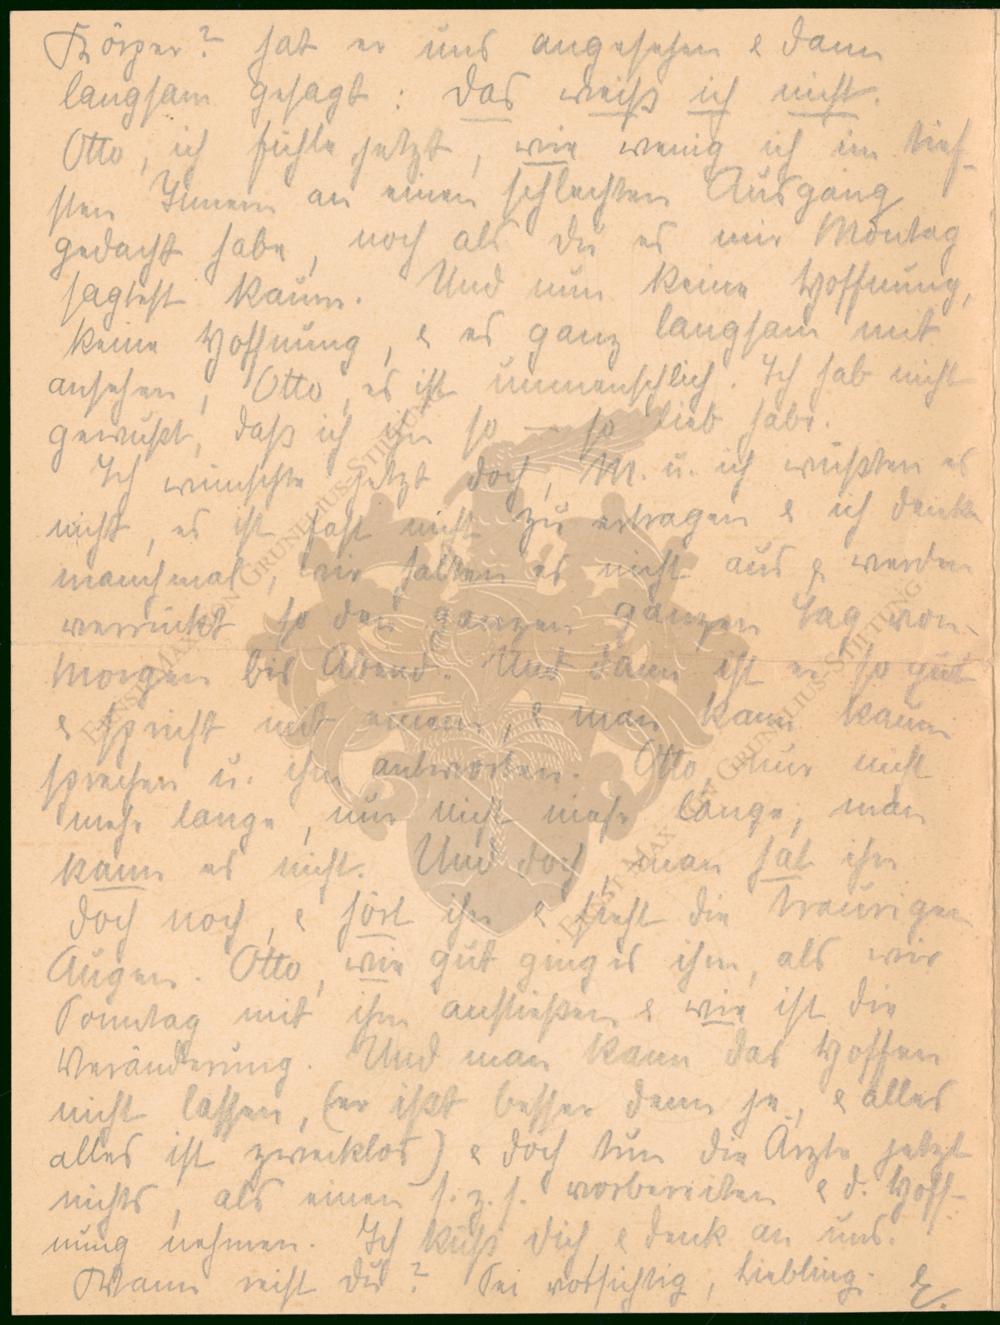 Körper? hat er uns angesehen & dann
langsam gesagt: das weiß ich nicht.
Otto, ich fühle jetzt, wie wenig ich im tief-
sten Innern an einen schlechten Ausgang
gedacht habe, noch als du es mir Montag
sagtest kaum. Und nun keine Hoffnung,
keine Hoffnung, & es ganz langsam mit
ansehen, Otto, es ist unmenschlich. Ich hab nicht
gewußt, daß ich ihn so — so lieb habe.
Ich wünschte jetzt doch, M. u. ich wüßten es
nicht, es ist fast nicht zu ertragen & ich denke
manchmal, wir halten es nicht aus & werden
verrückt so den ganzen ganzen Tag von
Morgen bis Abend. Und dann ist er so gut
& spricht mit einem, & man kann kaum
sprechen u. ihm antworten. Otto, nur nicht
mehr lange, nur nicht mehr lange, man
kann es nicht. Und doch man hat ihn
doch noch, & hört ihn & sieht die traurigen
Augen. Otto, wie gut ging es ihm, als wir
Sonntag mit ihm anstießen & wie ist die
Veränderung. Und man kann das Hoffen
nicht lassen, (er ißt besser denn je, & alles
alles ist zwecklos) & doch tun die Ärzte jetzt
nichts, als einen s. z. s. vorbereiten & d. Hoff-
nung nehmen. Ich küß dich & denk an uns.
Wann reist du? Sei vorsichtig, Liebling. E.
ERNST MAX VON GRUNELIUS-STIFTUNG
ERNST MAX VON GRUNELIUS-STIFTUNG